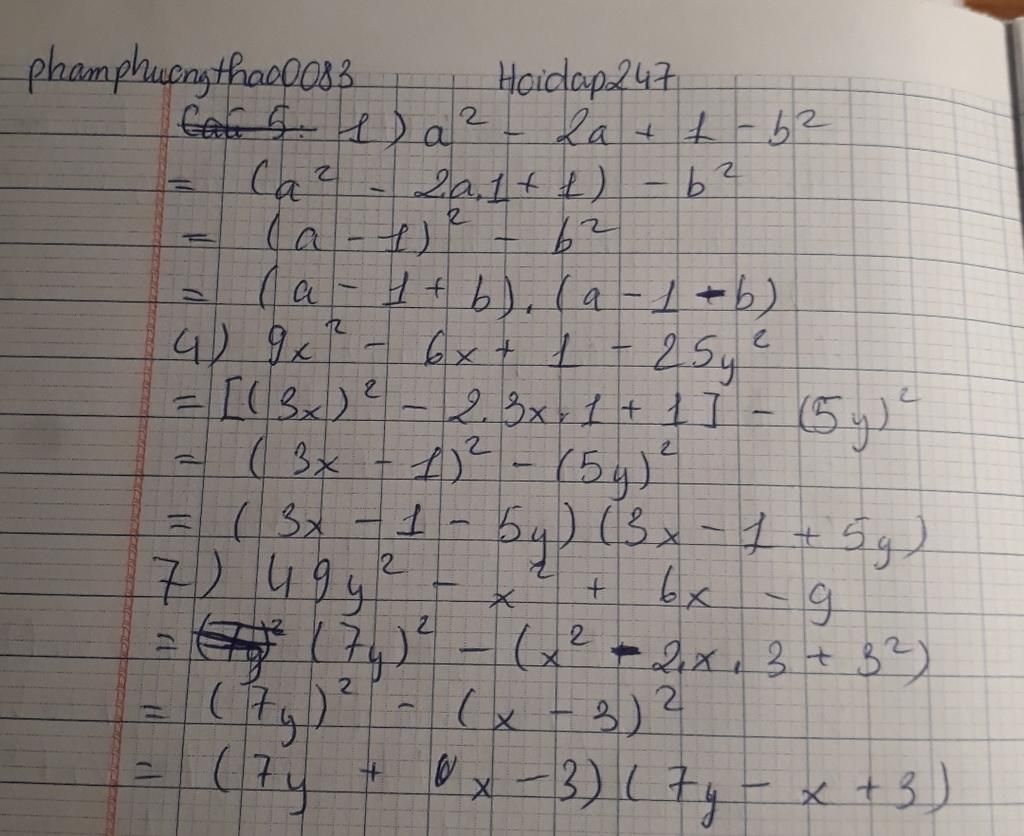 phamphuongthao0083 Hoidap247
1) a² - 2a + 1 - b²
= (a² - 2a.1 + 1) - b²
= (a - 1)² - b²
= (a - 1 + b).(a - 1 - b)
4) 9x² - 6x + 1 - 25y²
= [(3x)² - 2.3x.1 + 1] - (5y)²
= (3x - 1)² - (5y)²
= (3x - 1 - 5y)(3x - 1 + 5y)
7) 49y² - x² + 6x - 9
= (7y)² - (x² - 2.x.3 + 3²)
= (7y)² - (x - 3)²
= (7y + x - 3)(7y - x + 3)